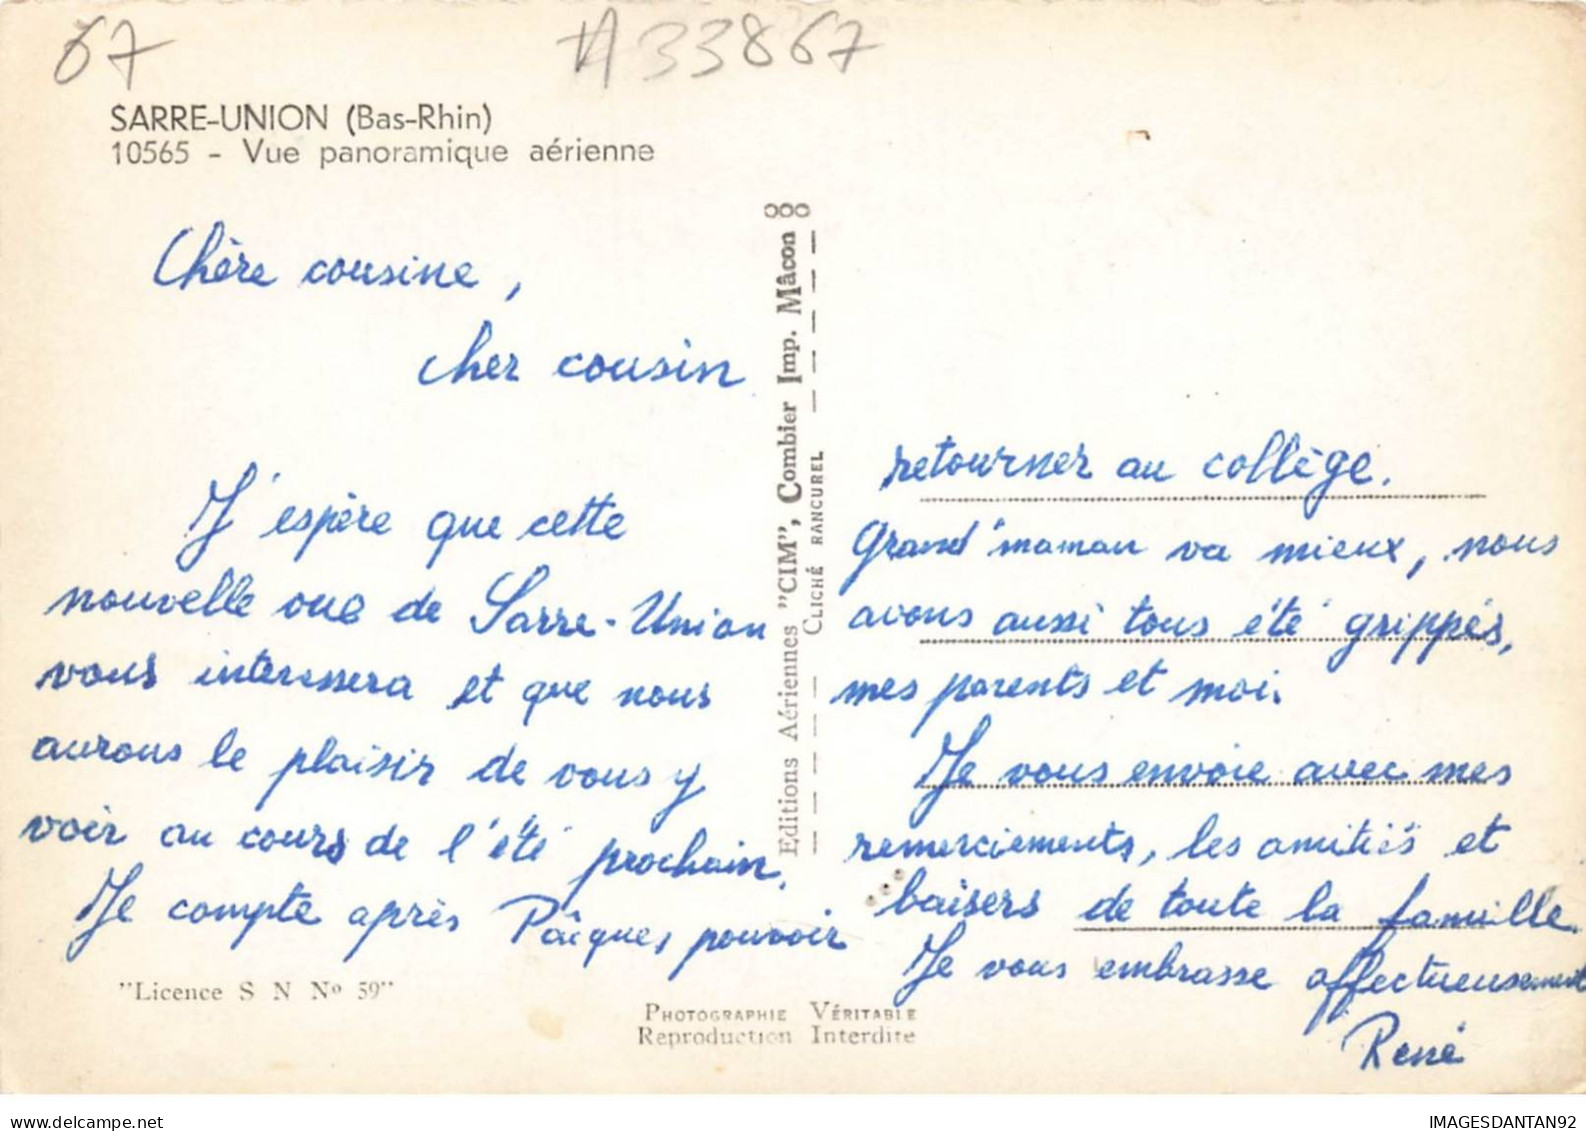 67
A33867
SARRE-UNION (Bas-Rhin)
10565 - Vue panoramique aérienne
Chère cousine,
cher cousin
J'espère que cette
nouvelle vue de Sarre-Union
vous interessera et que nous
aurons le plaisir de vous y
voir au cours de l'été prochain.
Je compte après Pâques pouvoir
"Licence S N Nº 59"
Editions Aériennes "CIM", Combier Imp. Mâcon
CLICHÉ RANCUREL
retourner au collège.
Grand'maman va mieux, nous
avons aussi tous été grippés,
mes parents et moi.
Je vous envoie avec mes
remerciements, les amitiés et
baisers de toute la famille.
Je vous embrasse affectueusement
René
PHOTOGRAPHIE VÉRITABLE
Reproduction Interdite
delcampe.net
IMAGESDANTAN92